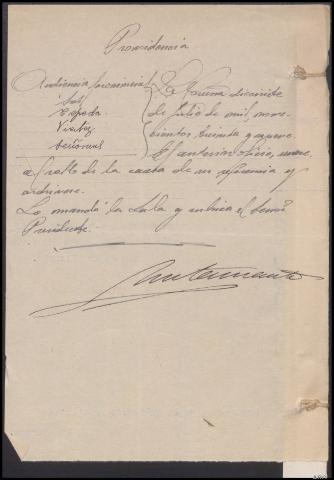 Providencia
Audiencia provincial
Sres
Cepeda
Vieitez
La Coruña diecisiete
de Julio de mil nove-
cientos treinta y nueve.
El anterior oficio, unase
al rollo de la causa de su referencia y
archivese.
Lo mandó la Sala y rubrica el Señor
Presidente.